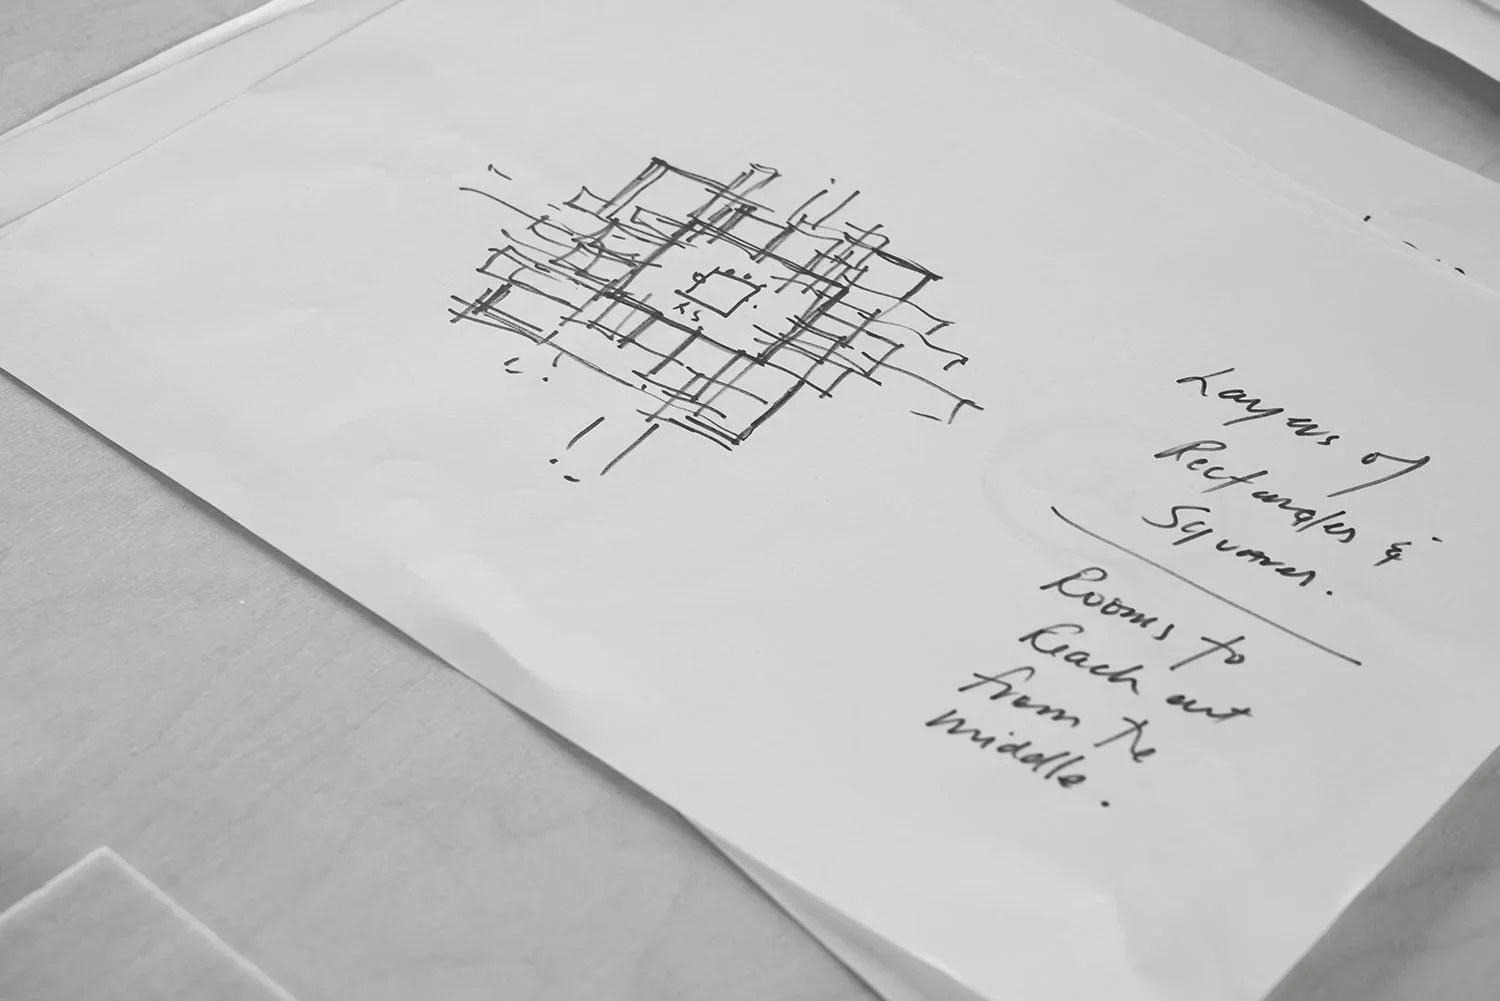 Layers of
Rectangles &
Squares.
Rooms to
Reach out
from the
middle.